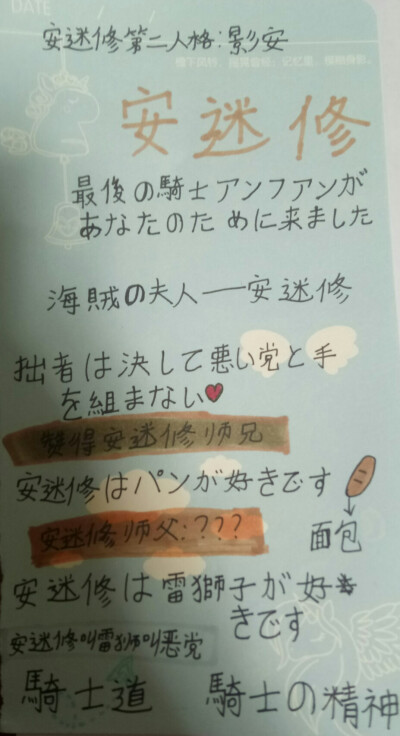 DATE
安迷修第二人格:影安
安迷修
最後の騎士アンファンが
あなたのために来ました
海賊の夫人——安迷修
拙者は決して悪い党と手
を組まない
赞得安迷修师兄
安迷修はパンが好きです
安迷修师父:???
面包
安迷修は雷獅子が好
きです
安迷修叫雷狮叫恶党
騎士道 騎士の精神